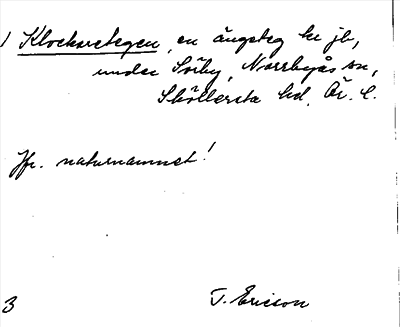 1 Klockaretegen, en ängsteg he jb,
under Sörby, Norrbyås sn,
Sköllersta hd. Ör. l.
Jfr. naturnamnet!
T. Ericson
3